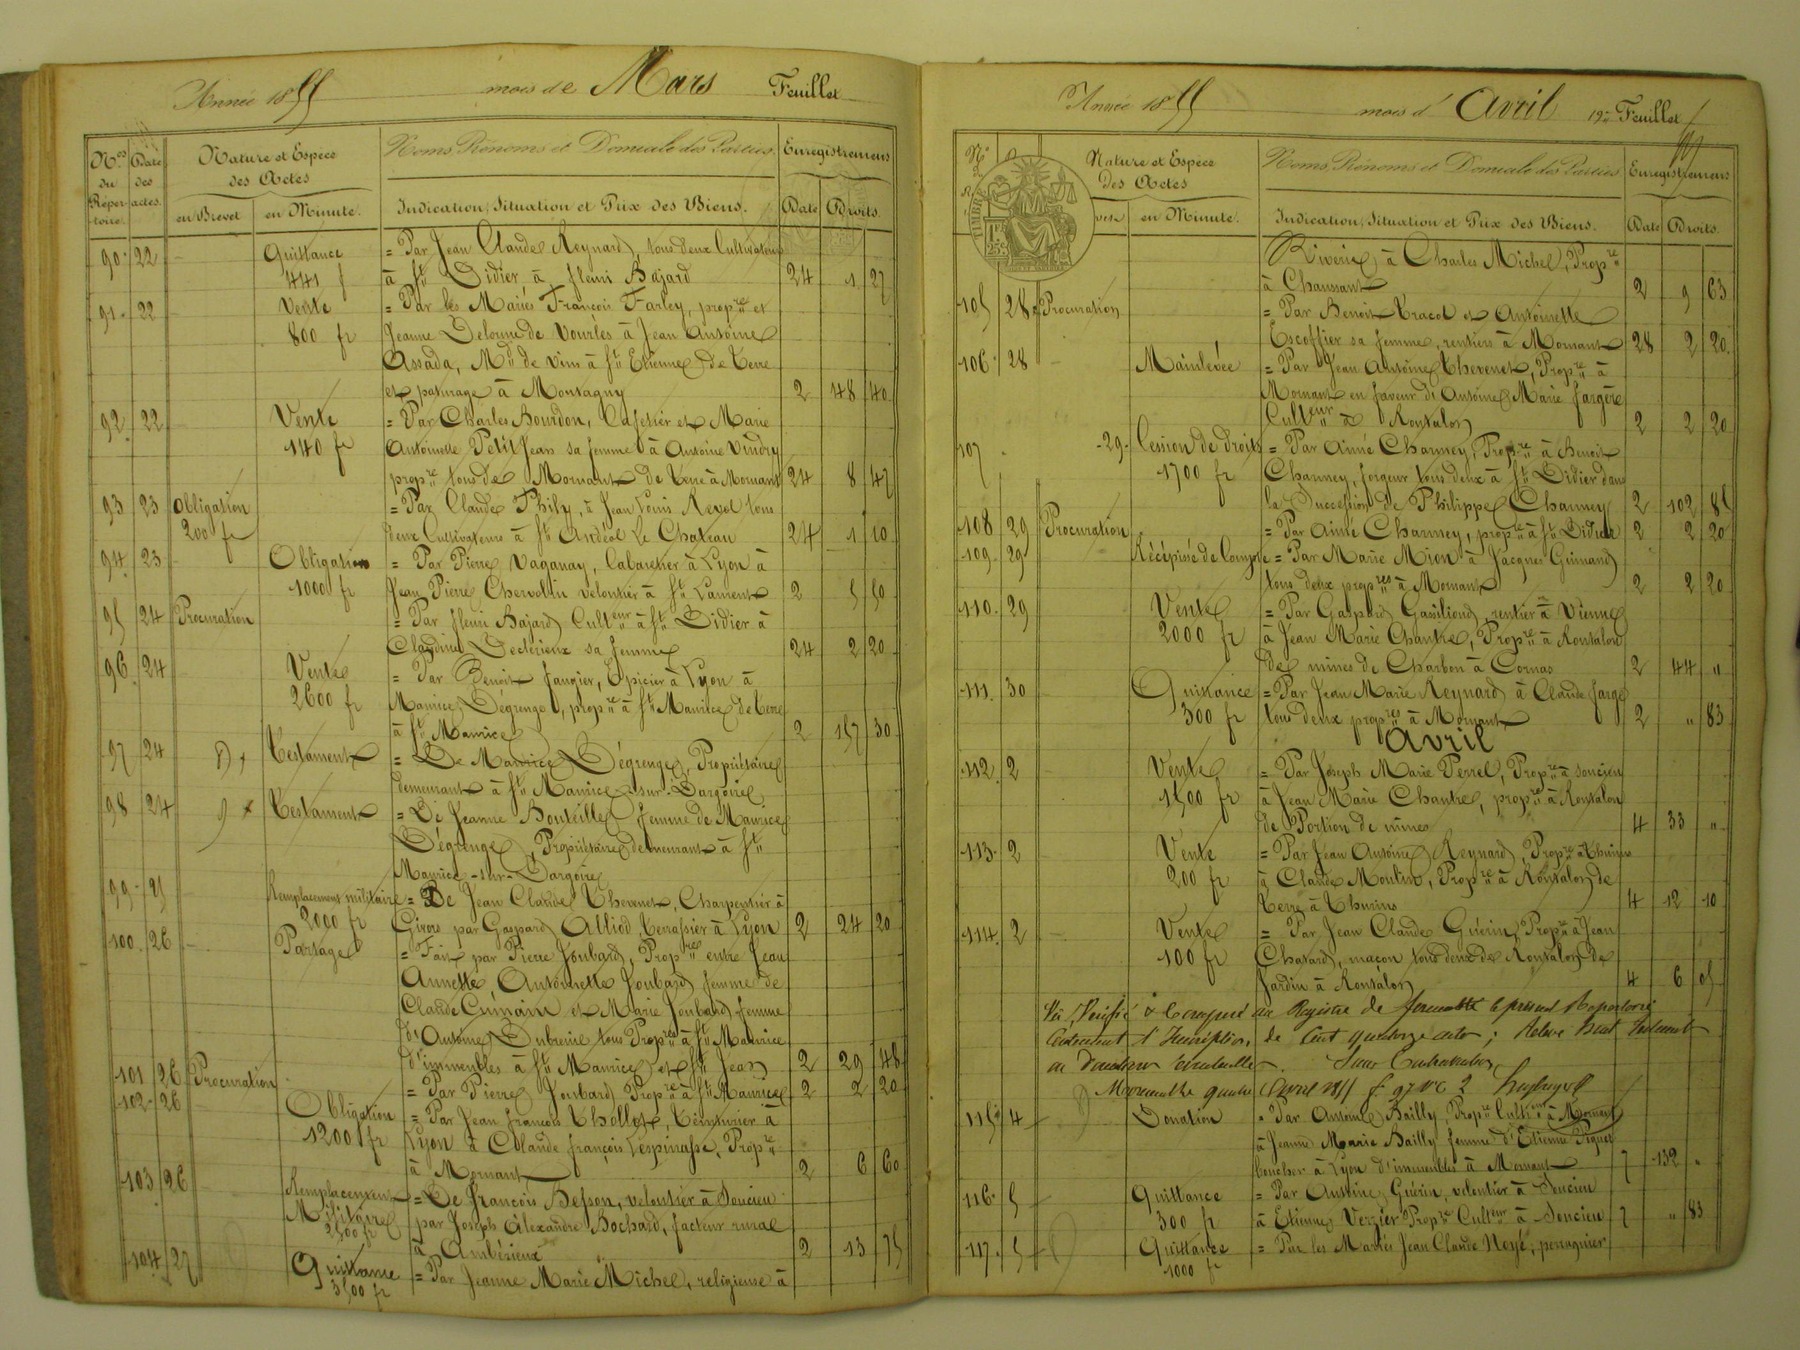 Année 1855 mois de Mars Feuillet
Nos du Répertoire. Date des actes. Nature et Espèce des Actes Noms Prénoms et Domicile des Parties. Enregistrement
en Brevet en Minute. Indication, Situation et Prix des Biens. Date Droits.
90 22 Quittance = Par Jean Claude Reynard, tous deux Cultivateurs
441 f à St Didier à fleuri Bajard 24 1 27
91 22 Vente = Par les Mariés François Farley, propre et
800 fr Jeanne Delorme de Vourles à Jean Antoine
Assada, Md de vins à St Etienne de Terre
et paturage à Montagny 2 48 40
92 22 Vente = Par Charles Bourdon, Cafetier et Marie
140 fr Antoinette Petit Jean sa femme à Antoine Vindry
propre tous de Mornant de Terre à Mornant 24 8 47
93 23 Obligation = Par Claude Phily, à Jean Louis Revol tous
200 fr deux Cultivateurs à St Andéol le Chateau 24 1 10
94 23 Obligation = Par Pierre Vaganay, Cabaretier à Lyon à
1000 fr Jean Pierre Chervolin veloutier à St Laurent 2 5 50
95 24 Procuration = Par fleuri Bajard Culteur à St Didier à
Claudine Declérieux sa femme 24 2 20
96 24 Vente = Par Benoit faugier, Epicier à Lyon à
2600 fr Maurice Dégrenge, propre à St Maurice de terre
à St Maurice 2 157 30
97 24 Testament = De Maurice Dégrenge, Propriétaire
demeurant à St Maurice-sur-Dargoire
98 24 Testament = De Jeanne Bouteille femme de Maurice
Dégrenge, Propriétaire demeurant à St
Maurice-sur-Dargoire
99 25 Remplacement militaire = De Jean Claude Thevenet, Charpentier à
2000 fr Givors par Gaspard Alliod, terrassier à Lyon 2 24 20
100 26 Partage = Fait par Pierre Joubard, Propres entre Jean
Annette, Antoinette Joubard femme de
Claude et Marie Joubard femme
d'Antoine Dubreuie tous Propres à St Maurice
d'immeubles à St Maurice et St Jean 2 29 48
101 26 Procuration = Par Pierre Joubard Propre à St Maurice 2 2 20
102 26 Obligation = Par Jean François Thollot, teinturier à
1200 fr Lyon à Claude françois Lespinasse, Propre
à Mornant 2 6 60
103 26 Remplacement = De françois Besson, veloutier à Soucieu
Militaire par Joseph Alexandre Bochard, facteur rural
2500 fr à Ambérieux 2 13 75
104 27 Quittance = Par Jeanne Marie Michel, religieuse à
3500 fr
Année 1855 mois d' Avril 19e Feuillet
Nature et Espèce des Actes Noms Prénoms et Domicile des Parties Enregistrement
en Minute. Indication, Situation et Prix des Biens. Date Droits.
TIMBRE
Riverie à Charles Michel, Propre
à Chaussant 2 9 63
105 28 Procuration = Par Benoit Bracol et Antoinette
Escoffier sa femme, rentiers à Mornant 28 2 20
106 28 Mainlevée = Par Jean Antoine Thevenet, Propre à
Mornant en faveur d'Antoine Marie fargère
Culteur à Rontalon 2 2 20
107 29 Cession de droits = Par Aimé Charmey, Propre à Benoit
1700 fr Charmey, forgeur tous deux à St Didier dans
la Succession de Philippe Charmey 2 102 85
108 29 Procuration = Par Aimé Charmey, propre à St Didier 2 2 20
109 29 Récépissé de Compte = Par Marie Miron à Jacques Guinand
tous deux propres à Mornant 2 2 20
110 29 Vente = Par Gaspard rentier à Vienne
2000 fr à Jean Marie Chantre, Propre à Rontalon
de mines de Charbon à Cornas 2 44 "
111 30 Quittance = Par Jean Marie Reynard à Claude farge
300 fr tous deux propres à Mornant 2 " 83
Avril
112 2 Vente = Par Joseph Marie Perret, Propre à Soucieu
1500 fr à Jean Marie Chantre, propre à Rontalon
de Portion de mines 4 33 "
113 2 Vente = Par Jean Antoine Reynard, Propre à Thurins
200 fr à Claude Moulin, Propre à Rontalon de
Terre à Thurins 4 12 10
114 2 Vente = Par Jean Claude Guérin, Propre à Jean
100 fr Chatard, maçon tous deux de Rontalon de
Jardin à Rontalon 4 6 05
Vu, Vérifié & au Registre de le présent Répertoire
contenant l'Inscription de Cent quatorze actes;
Sans Contravention
quatre Avril 1855
115 4 Donation = Par Antoine Bailly, Propre Culteur à Mornant
à Jeanne Marie Bailly femme d'Etienne Piquet
boucher à Lyon d'immeubles à Mornant 7 132 "
116 5 Quittance = Par Antoine Guérin, veloutier à Soucieu
300 fr à Etienne Verzier Propre Culteur à Soucieu 7 " 83
117 5 Quittance = Par les Mariés Jean Claude Noyé, perruquier
1000 fr